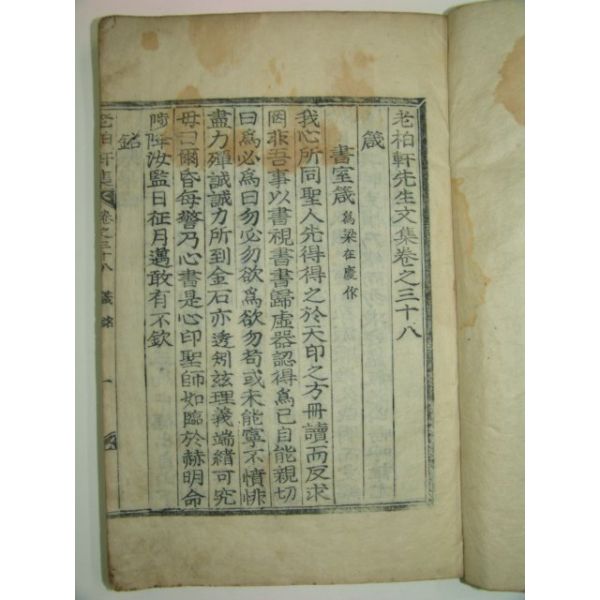 老柏軒先生文集卷之三十八
箴
書室箴 爲梁在慶作
我心所同聖人先得得之於天印之方冊讀而反求
因非吾事以書視書書歸虛器認得爲己自能親切
曰爲必爲曰勿必勿欲爲欲勿苟或未能寧不憤悱
盡力殫誠誠力所到金石亦透矧玆理義端緖可究
毋曰爾昏每警乃心書是心印聖師如臨於赫明命
降汝監日征月邁敢有不欽
銘
老柏軒集 卷之三十八 箴 銘 一